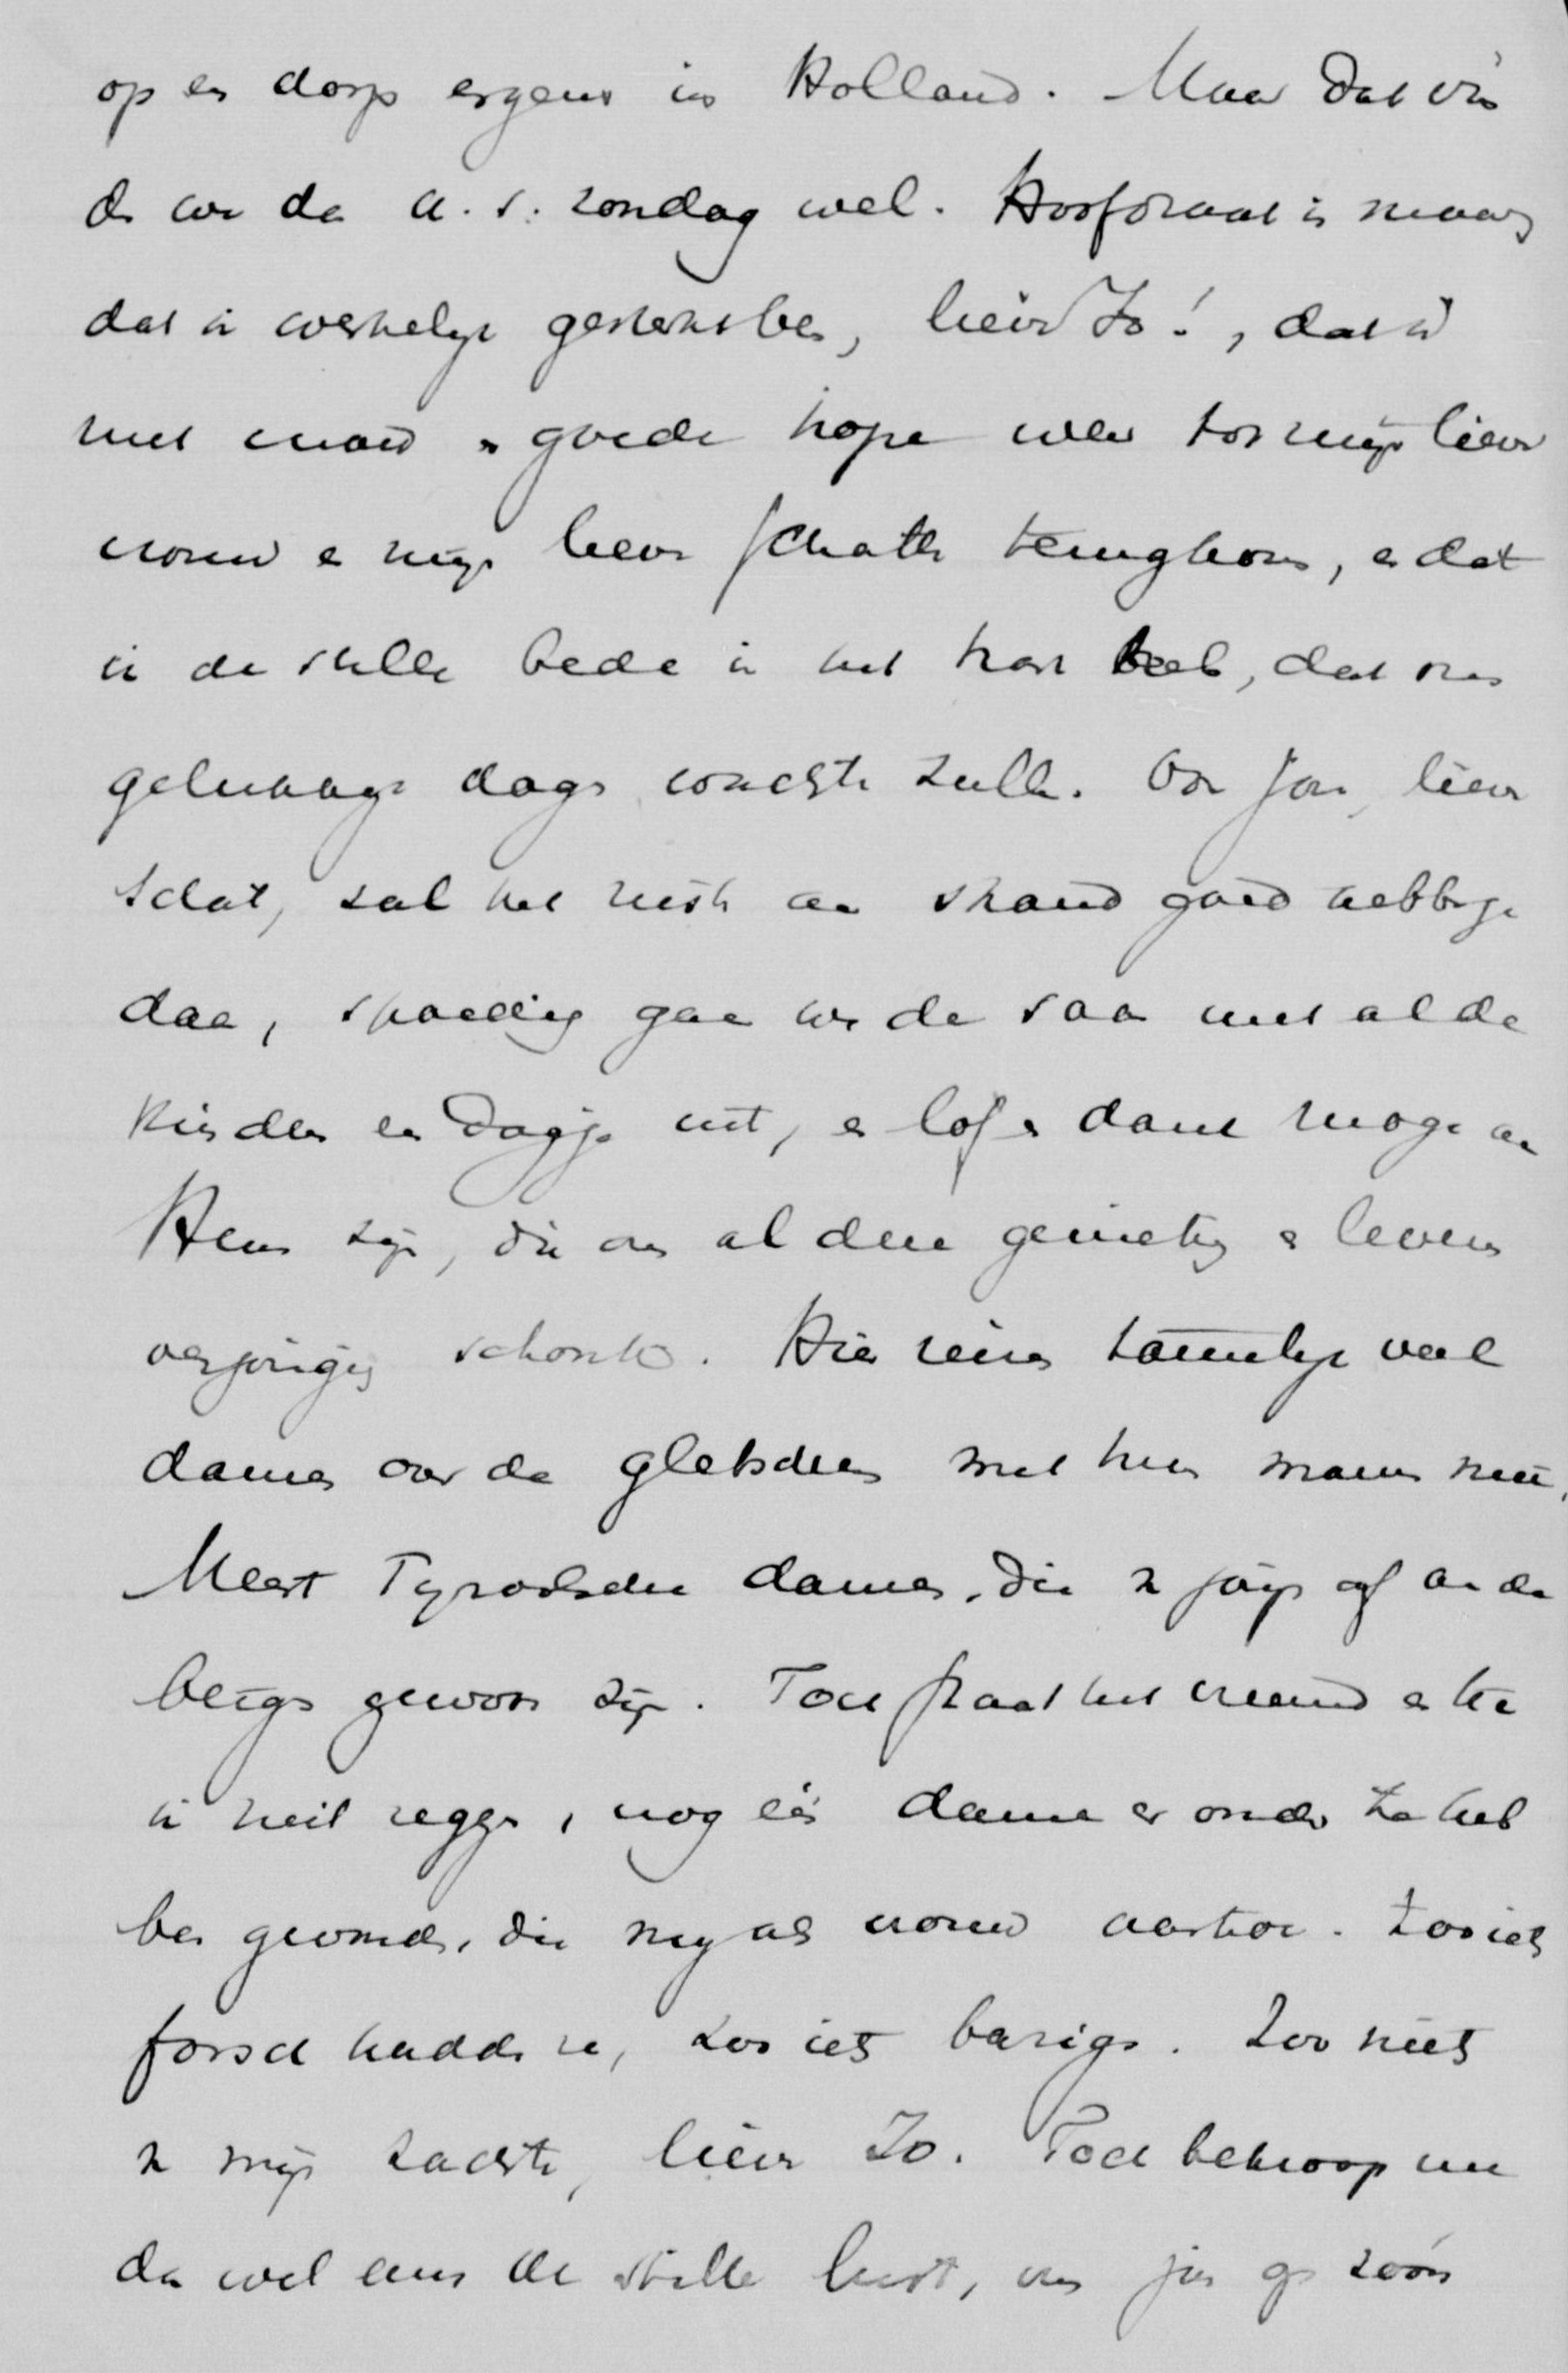 op en dorp ergens in Holland. Maar dat vin
de we de a.s. zondag wel. Hoofdzaak is maar,
dat ik werkelijk gesterkt ben, lieve Jo!, dat ik
met moed en goede hope weer tot mijn lieve
vrouw en mijn lieve schatten terugkom, en dat
ik de stille bede in het hart heb, dat ons
gelukkige dagen wachten zullen. Ook jou, lieve
schat, zal het rusten aan strand goed hebben ge
daan, spoedig gaan we de saam met al de
kinderen een dagje uit, en lof en dank moge aan
Hem zijn, die ons al deze genieting en levens
verjonging schonk. Hier reizen tamelijk veel
dames over de gletschers met hun mannen mee,
Meest Tyroolsche dames, die van jongs af aan de
bergen gewoon zijn. Toch staat het vreemd en kan
ik niet zeggen, nog één dame er onder te heb
ben gevonden, die mij als vrouw aantrok. Zoo iets
forsch hadden ze, zoo iets bazigs. Zoo niets
van mijn zachte, lieve Jo. Toch bekroop me
dan wel eens de stille lust, om jou op zoo'n